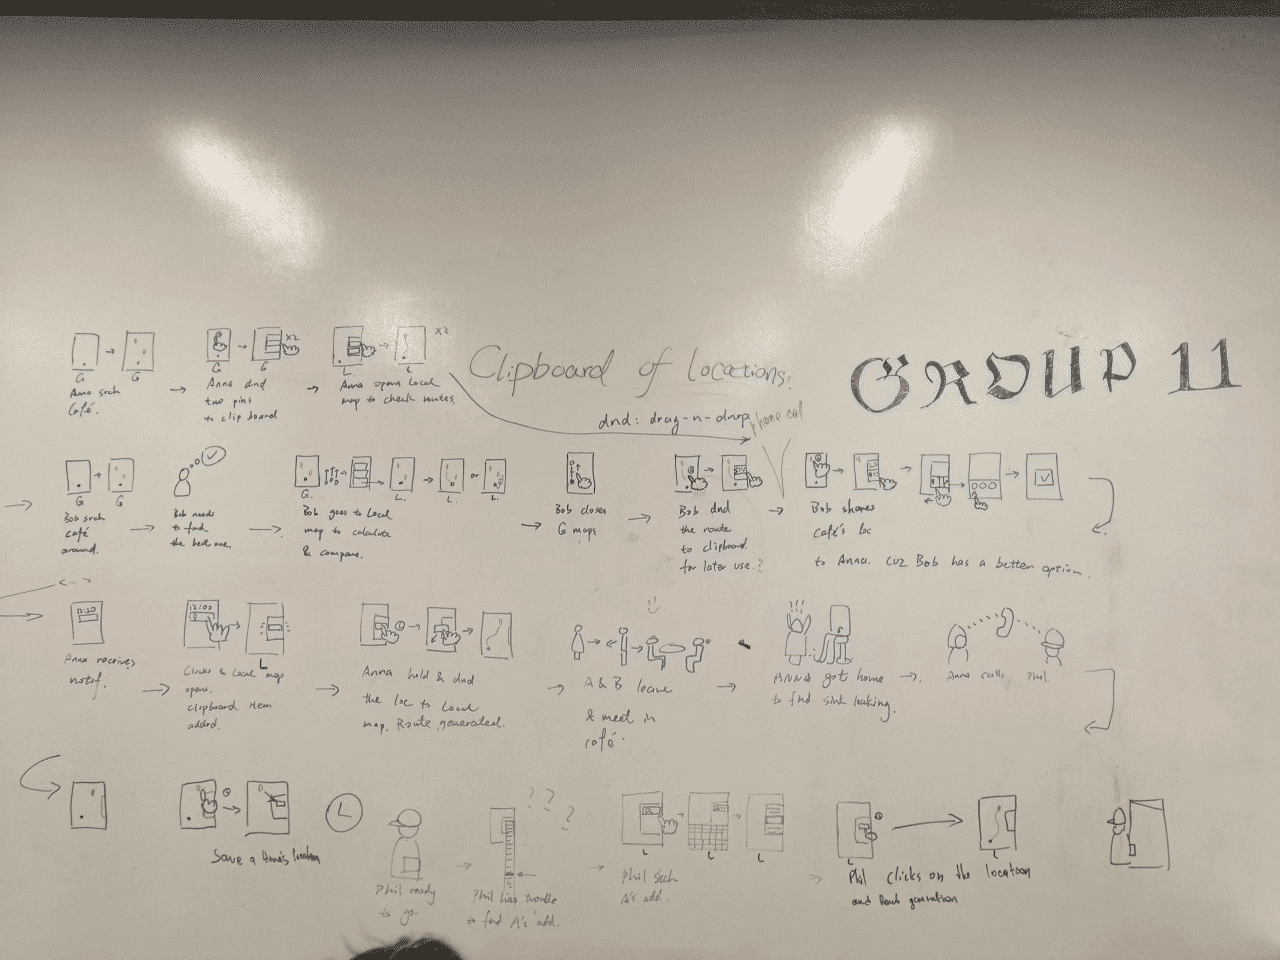 Clipboard of locations.
GROUP 11
dnd: drag-n-drop
phone call
G
G
Anna srch
Café.
G
G
X2
Anna dnd
two pins
to clip board
L
L
X2
Anna opens Local
map to check routes.
G
G
Bob srch
café
around.
Bob needs
to find
the best one.
G.
L.
L.
or
L.
Bob goes to Local
map to calculate
& compare.
Bob closes
G maps.
Bob dnd
the route
to clipboard
for later use.?
Bob shares
café's loc
to Anna. cuz Bob has a better option.
12:30
Anna receives
notif.
12:00
L
Clicks & Local map
opens.
clipboard item
added.
Anna hold & dnd
the loc to Local
map. Route generated.
A & B leave
& meet in
café.
ANNA got home
to find sink leaking.
Anna calls Phil
Save a Anna's location
L
Phil ready
to go.
? ? ?
Phil has trouble
to find A's add.
L
L
Phil srch
A's add.
L
L
Phil clicks on the location
and